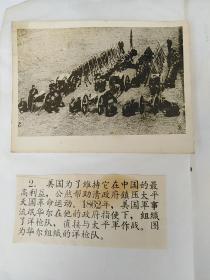 2. 美国为了维持它在中国的最
高利益，公然帮助清政府镇压太平
天国革命运动。1862年，美国军事
流氓华尔在他的政府指使下，组织
了洋枪队，直接与太平军作战。图
为华尔组织的洋枪队。